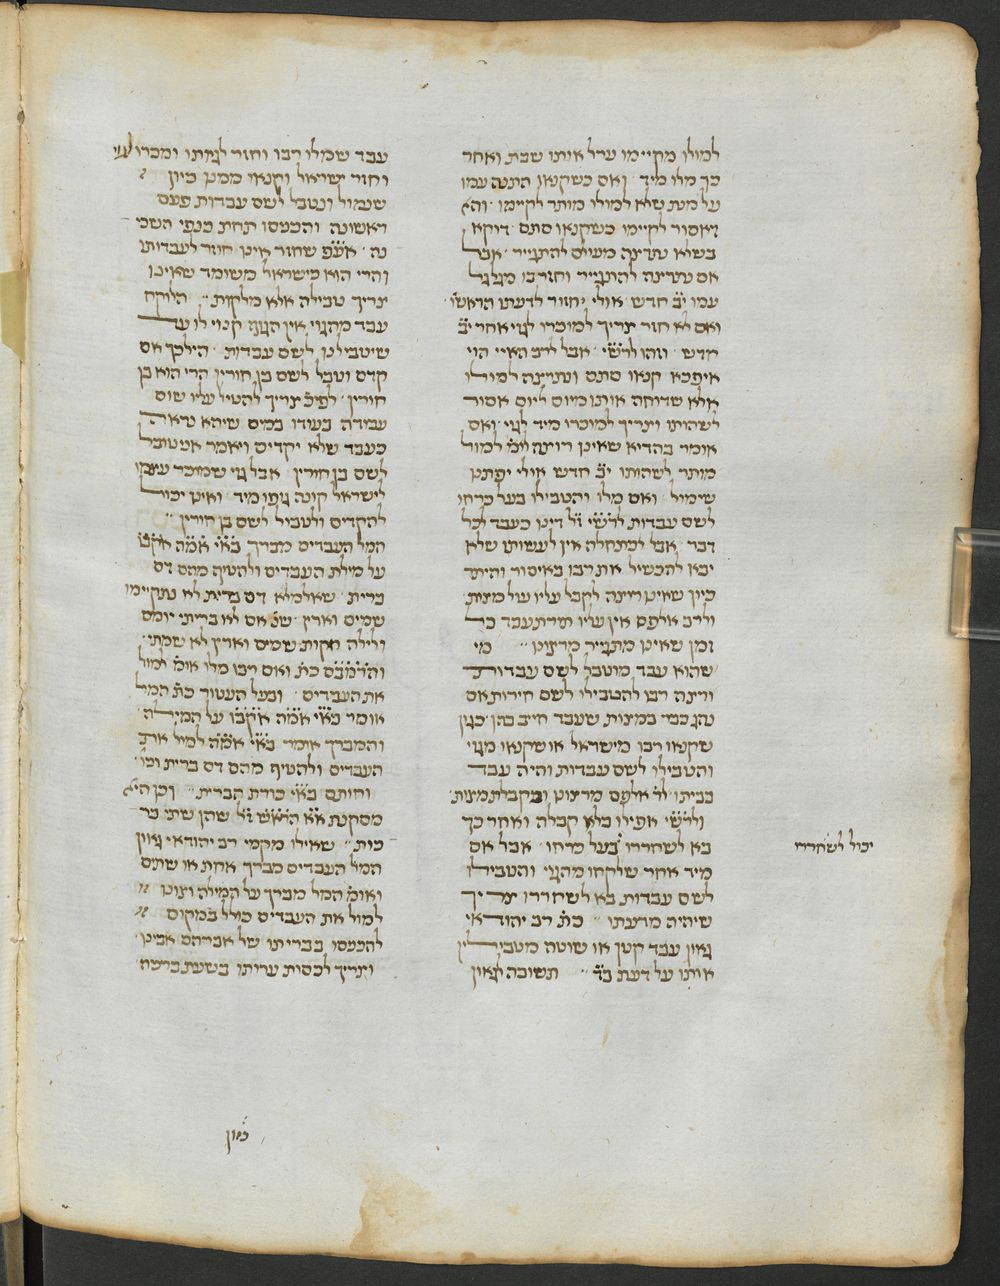 למולו מקיימו ערל אותו שבת ואחר
כך מלו מיד ואם כשקנאו התנה עמו
על מנת שלא למולו מותר לקיימו והא
דאסור לקיימו כשקנאו סתם דוקא
בשלא נתרצה מעולם להתגייר אבל
אם נתרצה להתגייר וחזר בו מגלגל
עמו י״ב חדש אולי יחזור לדעתו הראשו׳
ואם לא חזר צריך למוכרו לגוי אחר י״ב
חדש וזהו לרש״י אבל לרב האיי הוי
איפכא קנאו סתם ונתרצה למילה
אלא שדוחה אותו מיום ליום אסור
לשהותו וצריך למוכרו מיד לגוי ואם
אומר בהדיא שאינו רוצה למול
מותר לשהותו י״ב חדש אולי יפתנו
שימול ואם מלו והטבילו בעל כרחו
לשם עבדות לרש״י ז״ל דינו כעבד לכל
דבר אבל לכתחלה אין לעשותו שלא
יבא להכשיל את רבו באיסור והיתר
כיון שאינו רוצה לקבל עליו עול מצות
ולרב אלפס אין עליו תורת עבד כל
זמן שאינו מתגייר מרצונו מי
שהוא עבד מוטבל לשם עבדות
ורוצה רבו להטבילו לשם חירות אם
נהג כבר במצות שעבד חייב בהן כגון
שקנאו רבו מישראל או שקנאו מגוי
והטבילו לשם עבדות והיה עבד
בביתו לר׳ אלפס מרצונו ובקבלת מצות
ולרש״י אפילו בלא קבלה ואחר כך
בא לשחררו בעל כרחו אבל אם
מיד אחר שלקחו מהגוי והטבילו
לשם עבדות בא לשחררו צריך
שיהיה מדעתו כת׳ רב יהודאי
גאון עבד קטן או שוטה מטבילין
אותו על דעת ב״ד תשובה לגאון
יכול לשחררו
עבד שמלו רבו וחזר לגיותו ומכרו לגוי
וחזר ישראל וקנאו ממנו כיון
שנמול ונטבל לשם עבדות פעם
ראשונה והכנסו תחת כנפי השכי
נה אע״פ שחזר אינו חוזר לעבדותו
והרי הוא כישראל משומד שאינו
צריך טבילה אלא מלקות הלוקח
עבד מהגוי אין הגוף קנוי לו עד
שיטבילנו לשם עבדות הילכך אם
קדם וטבל לשם בן חורין הרי הוא בן
חורין לפיכ׳ צריך להטיל עליו שום
עבודה בעודו במים שיהא נראה
כעבד שלא יקדים ויאמר אני טובל
לשם בן חורין אבל גוי שמוכר עצמו
לישראל קונה גופו מיד ואינו יכול
להקדים ולטבול לשם בן חורין
המל העבדים מברך בא״י אמ״ה אקב״ו
על מילת העבדים ולהטיף מהם דם
ברית שאלמלא דם ברית לא נתקיימו
שמים וארץ שנ׳ אם לא בריתי יומם
ולילה חקות שמים וארץ לא שמתי
והרמב״ם כת׳ ואם רבו מלו אומ׳ למול
את העבדים ובעל העטור כת׳ המל
אומר בא״י אמ״ה אקב״ו על המילה
והמברך אומר בא״י אמ״ה למול את
העבדים ולהטיף מהם דם ברית וכו׳
וחותם בא״י כורת הברית וכן היא
מסקנת א״א הרא״ש ז״ל שהן שתי בר
כות שאילו מקמי רב יהודאי גאון
המל העבדים מברך אחת או שתים
ואומ׳ המל מברך על המילה וצונו
למול את העבדים כולל במקום
להכניסו בבריתו של אברהם אבינו
וצריך לכסות ערותו בשעת ברכה
כיון